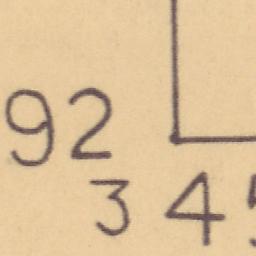 92
3 4